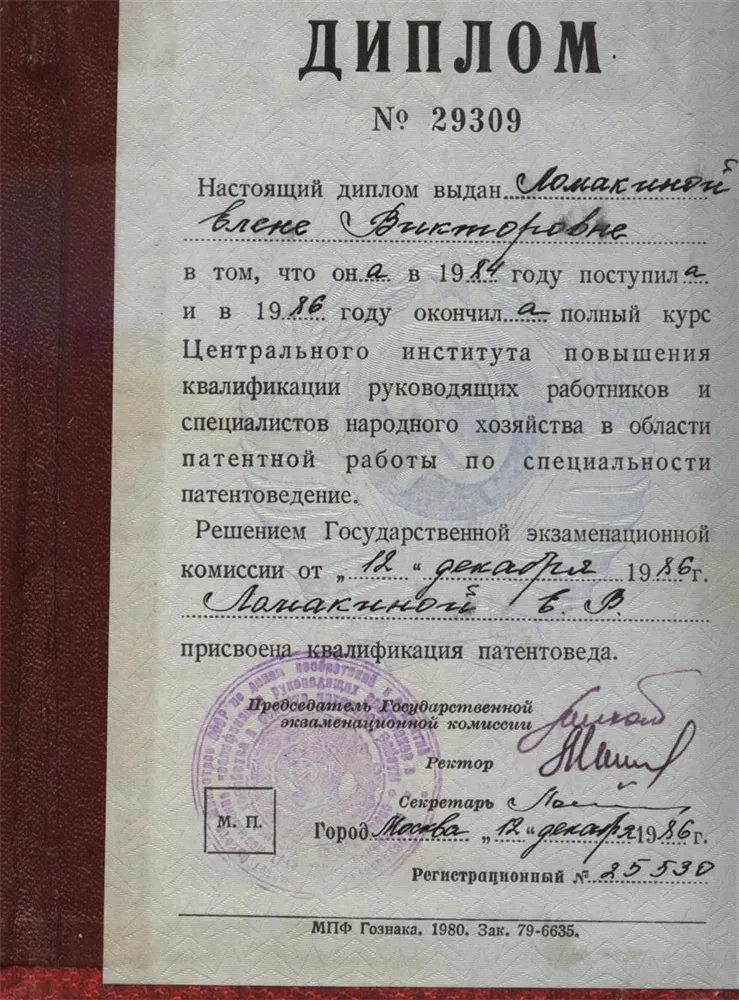 ДИПЛОМ
№ 29309
Настоящий диплом выдан Ломакиной
Елене Викторовне
в том, что она в 1984 году поступила
и в 1986 году окончила полный курс
Центрального института повышения
квалификации руководящих работников и
специалистов народного хозяйства в области
патентной работы по специальности
патентоведение.
Решением Государственной экзаменационной
комиссии от „12“ декабря 1986г.
Ломакиной Е. В.
присвоена квалификация патентоведа.
Председатель Государственной
экзаменационной комиссии
Ректор
Секретарь
М. П.
Город Москва „12“ декабря 1986г.
Регистрационный № 25530
МПФ Гознака. 1980. Зак. 79-6635.